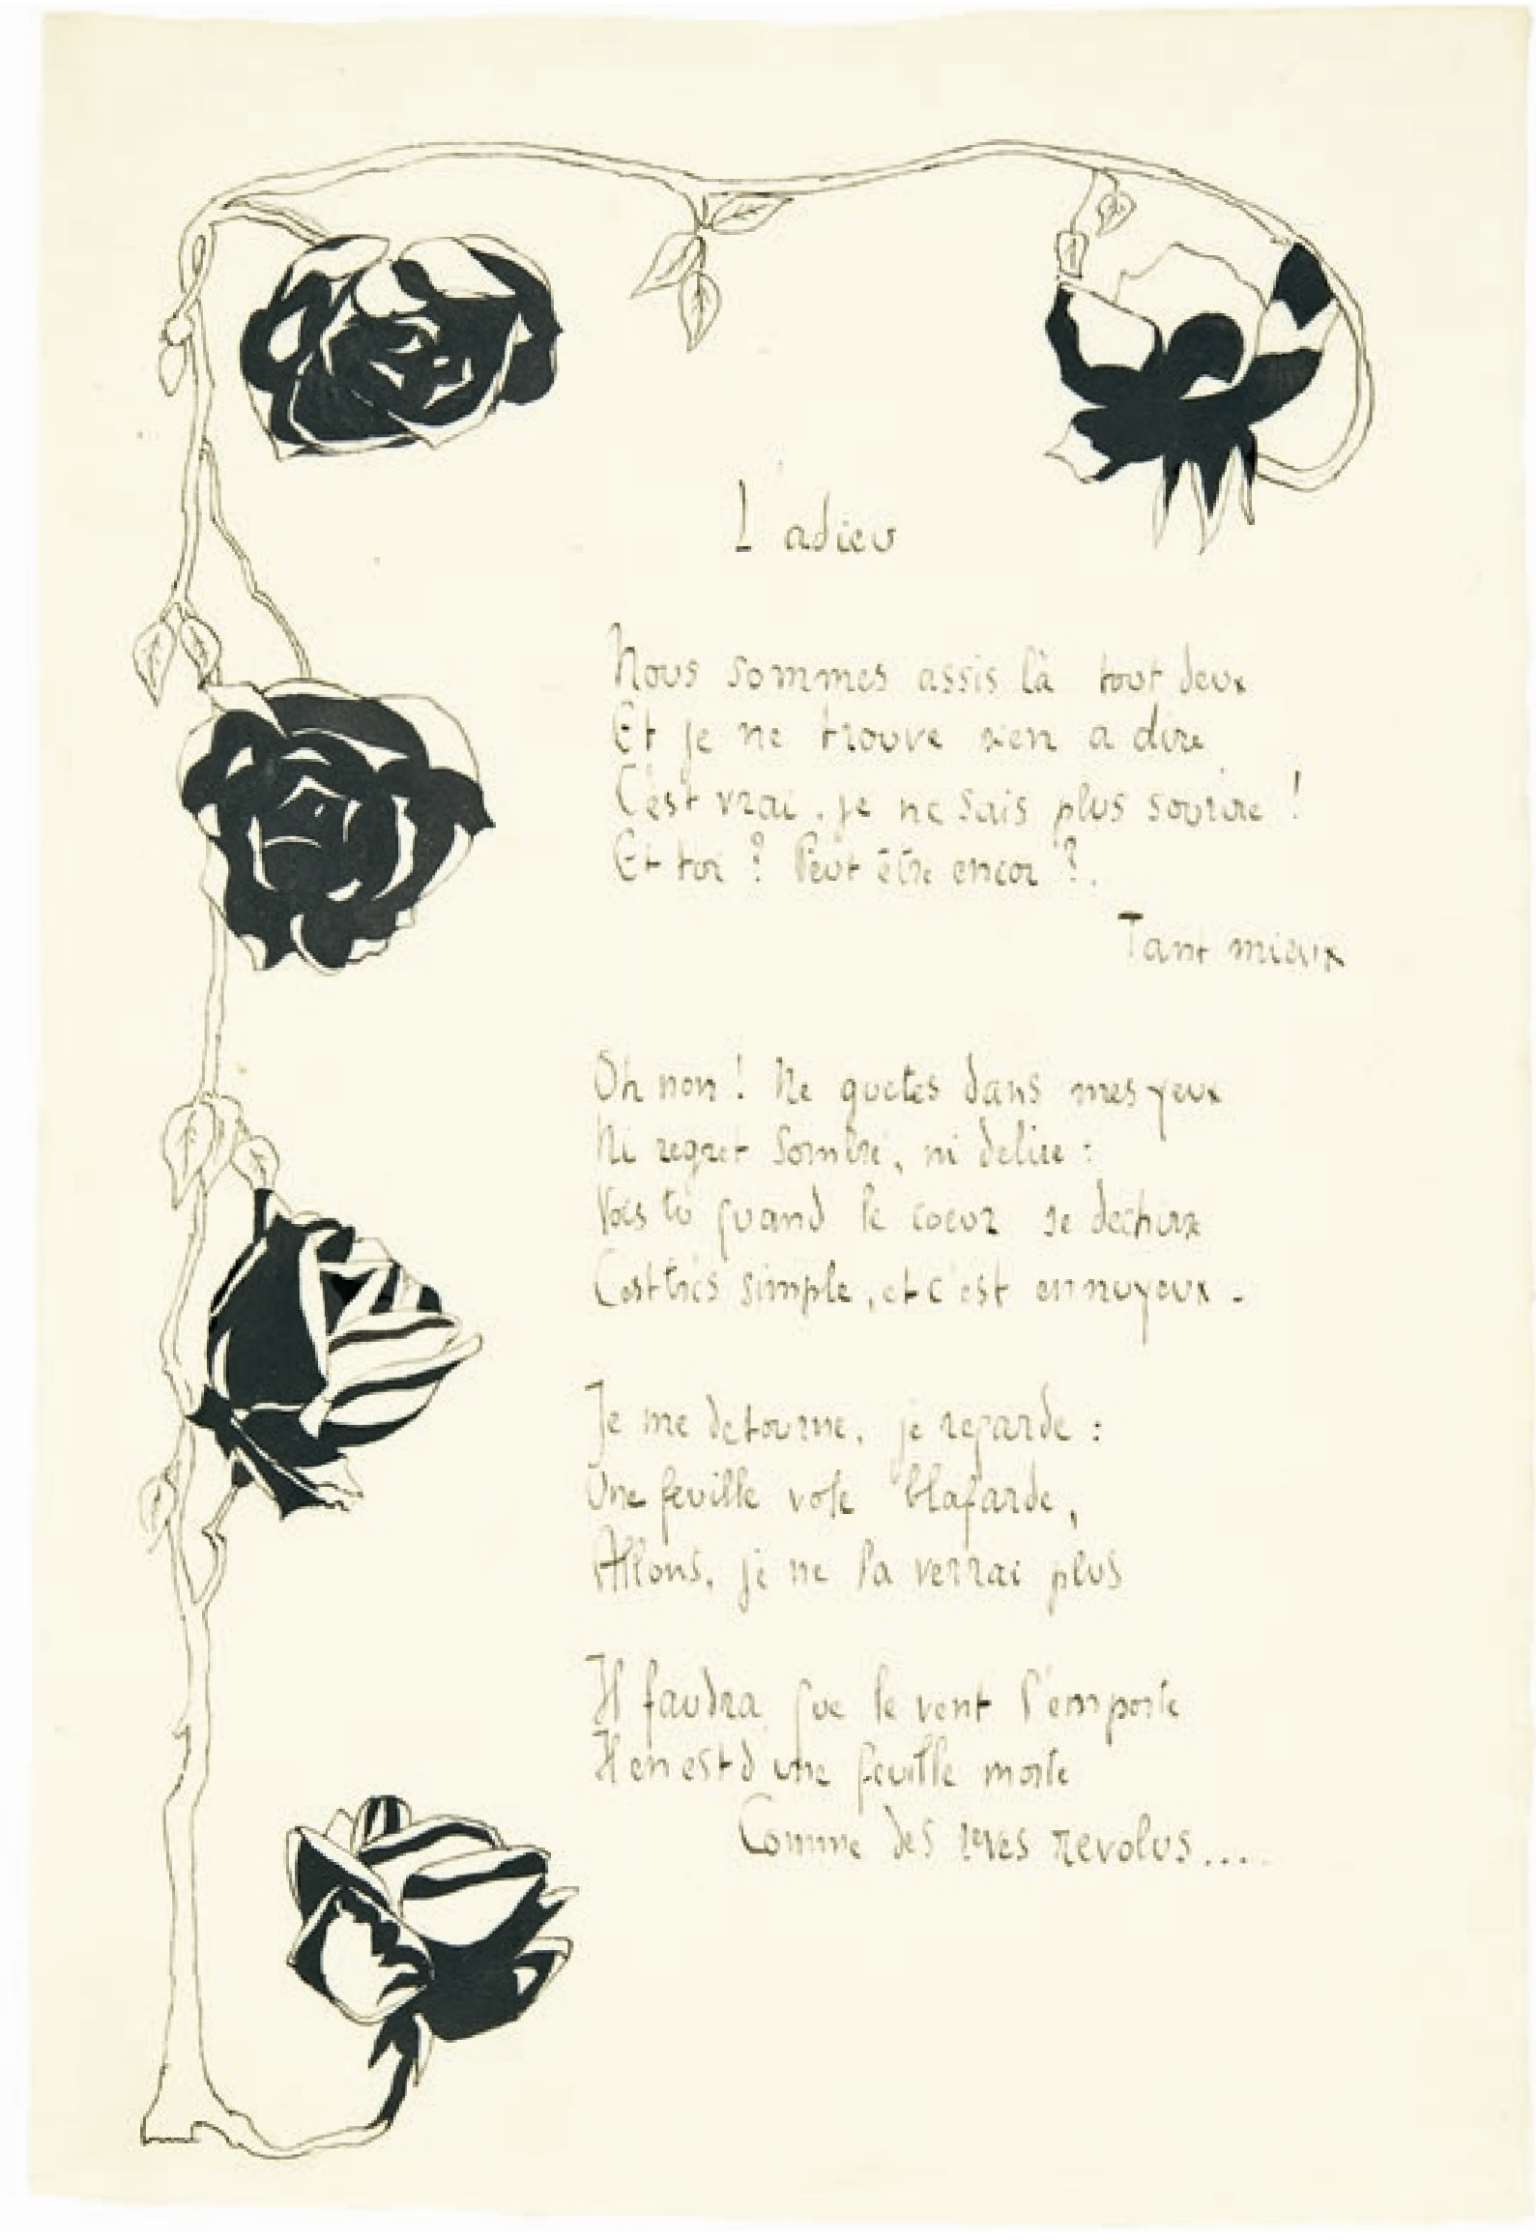 L'adieu
Nous sommes assis là tout deux
Et je ne trouve rien a dire
C'est vrai, je ne sais plus sourire !
Et toi ? Peut être encor ?.
Tant mieux
Oh non ! Ne guetes dans mes yeux
Ni regret sombre, ni delire :
Vois tu quand le coeur se dechire
C'est très simple, et c'est ennuyeux -
Je me detourne, je regarde :
Une feuille vole blafarde,
Allons, je ne la verrai plus
Il faudra que le vent l'emporte
Il en est d'une feuille morte
Comme des reves revolus....